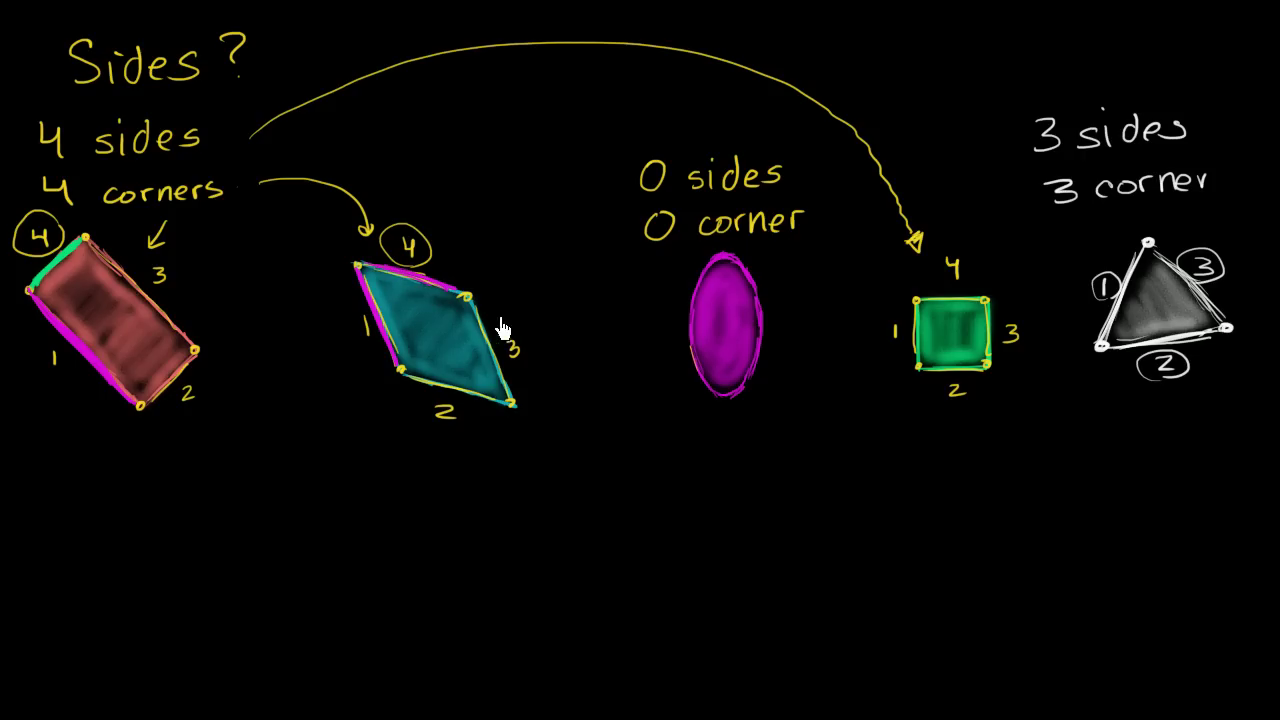 Sides?
4 sides
4 corners
4
1
2
3
4
1
2
3
0 sides
0 corner
4
1
2
3
3 sides
3 corner
1
2
3